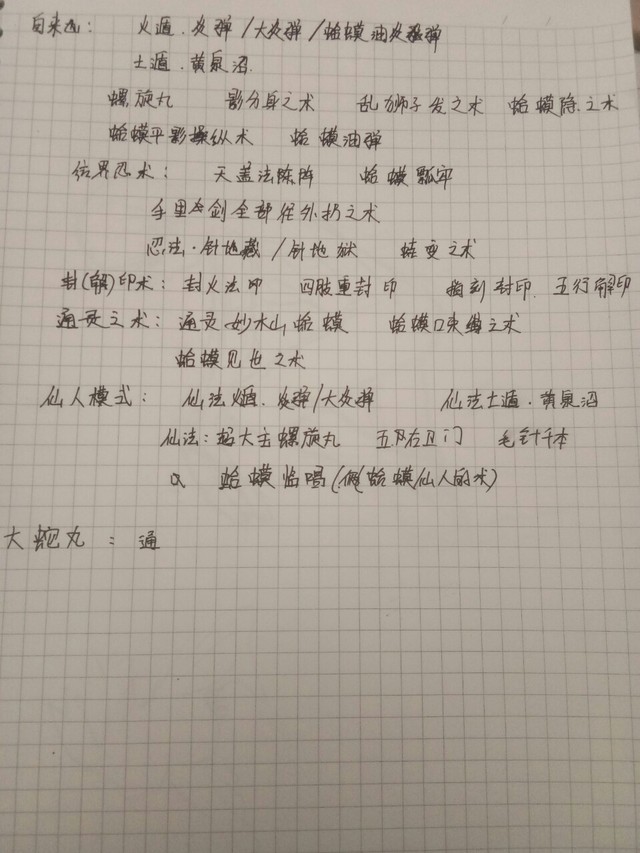 自来也： 火遁·炎弹/大炎弹/蛤蟆油炎弹
土遁·黄泉沼
螺旋丸 影分身之术 乱狮子发之术 蛤蟆隐之术
蛤蟆平影操纵术 蛤蟆油弹
结界忍术： 天盖法阵阵 蛤蟆瓢牢
手里剑全部往外扔之术
忍法·针地藏/针地狱 蛙变之术
封(解)印术：封火法印 四肢重封印 指刻封印 五行解印
通灵之术：通灵妙木山蛤蟆 蛤蟆口束缚之术
蛤蟆见世之术
仙人模式： 仙法火遁·炎弹/大炎弹 仙法土遁·黄泉沼
仙法：超大玉螺旋丸 五右卫门 毛针千本
蛤蟆临唱(蛤蟆仙人的术)
大蛇丸：通